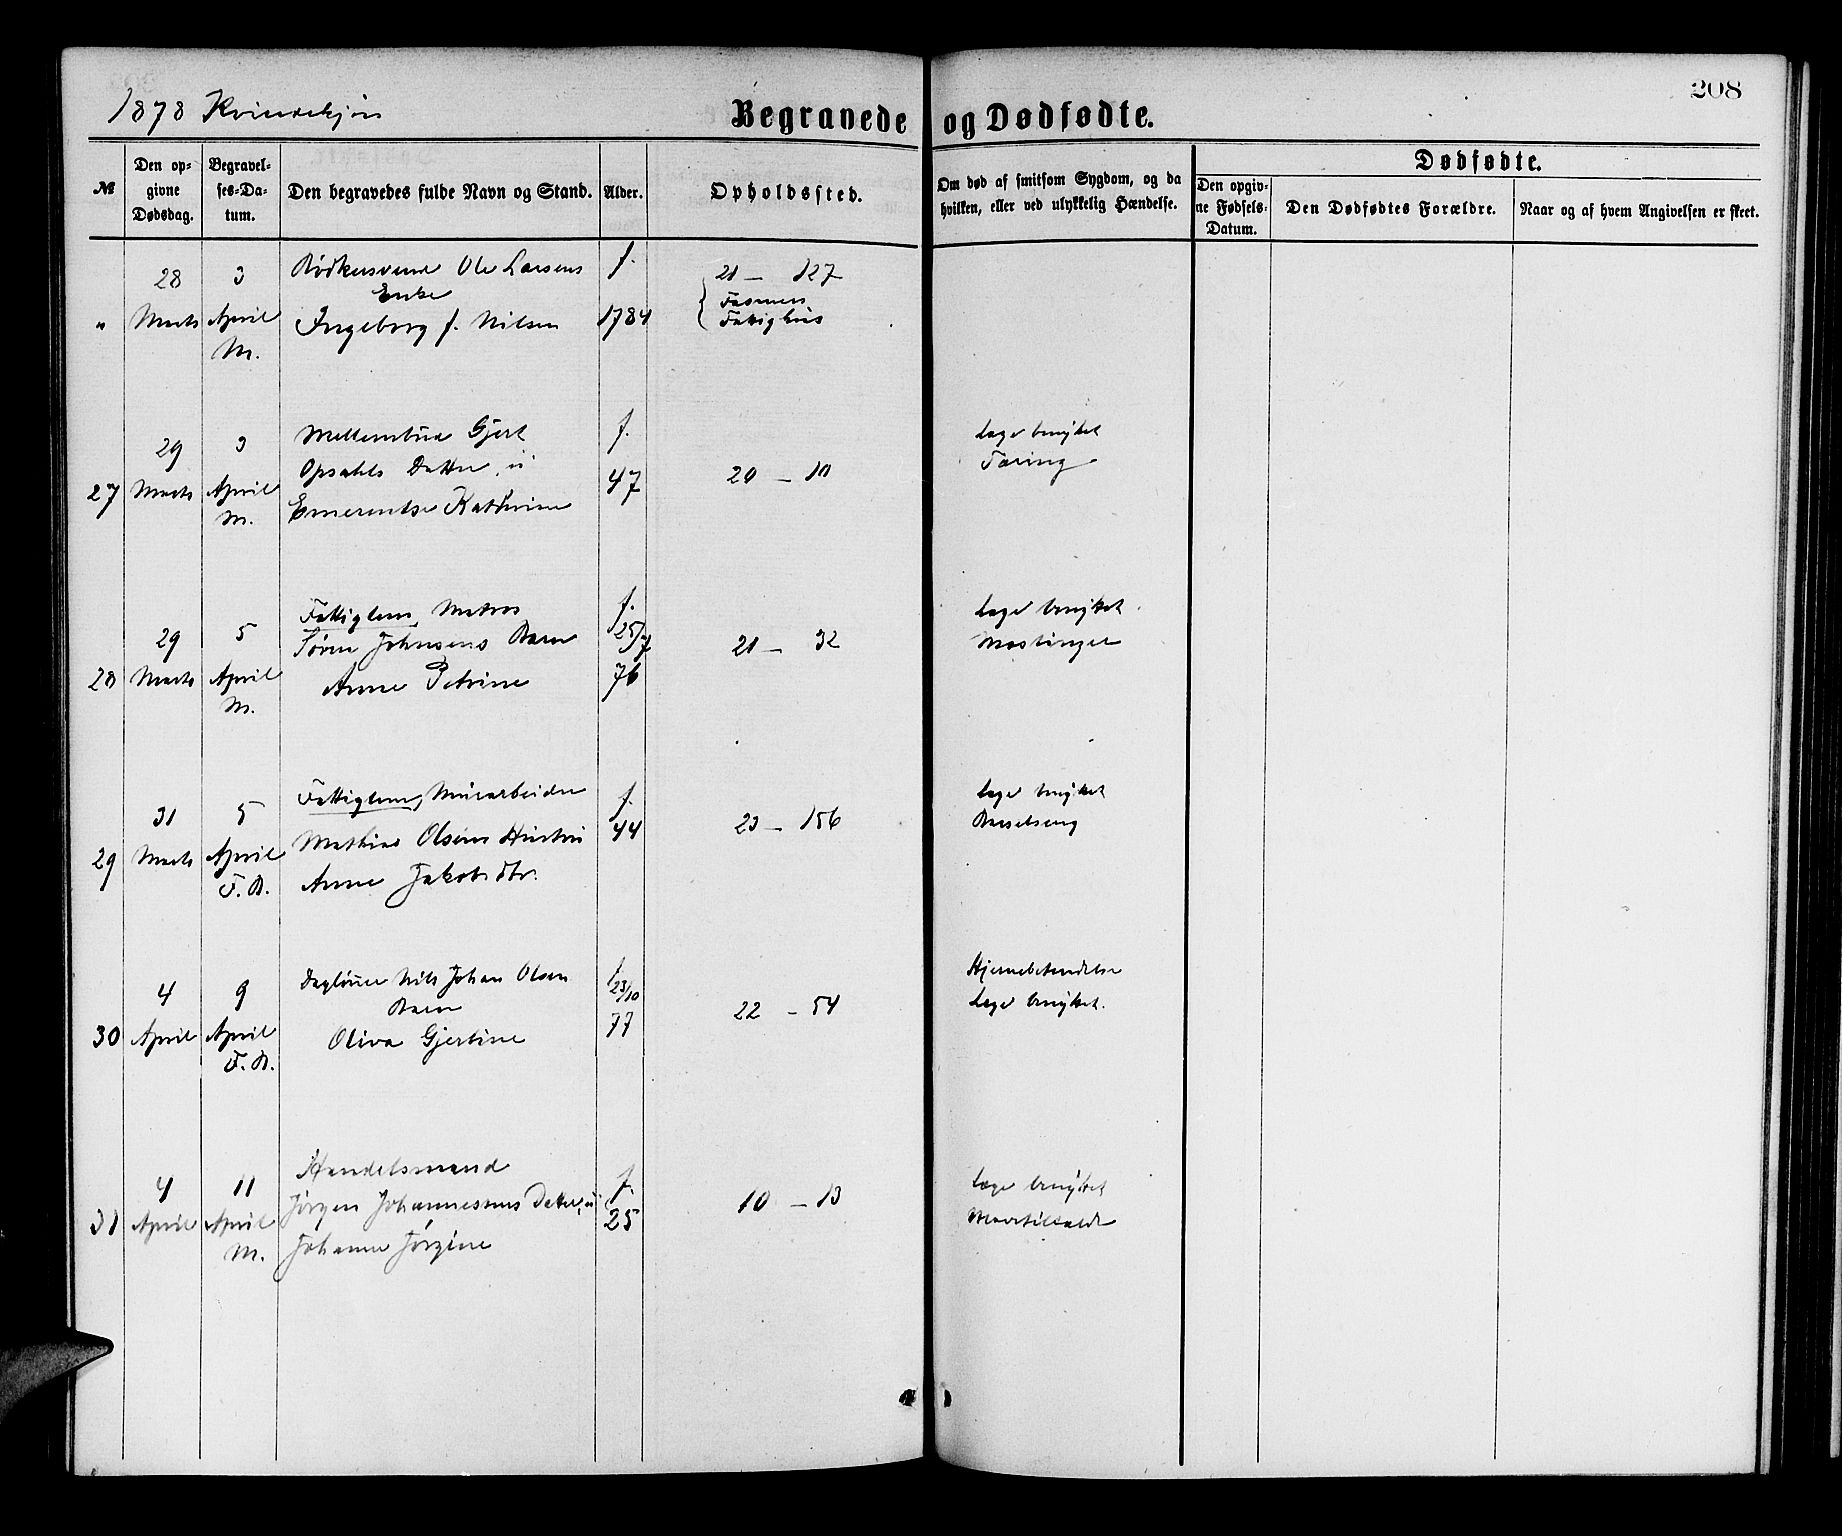 208
1878 Kvindekjøn
Begravede og Dødfødte.
№
Den op-
givne
Dødsdag.
Begravel-
ses-Da-
tum.
Den begravedes fulde Navn og Stand.
Alder.
Opholdssted.
Om død af smitsom Sygdom, og da
hvilken, eller ved ulykkelig Hændelse.
Dødfødte.
Den opgiv-
ne Fødsels-
Datum.
Den Dødfødtes Forældre.
Naar og af hvem Angivelsen er skeet.
"
28
Marts
3
April
M.
Bødkersvend Ole Larsens
Enke
Ingeborg f. Nilsen
f.
1784
21 – 127
Fasmers
Fattighus
27
29
Marts
3
April
M.
Gjert
Opsahls Datter, u
Emerentse Kathrine
f.
47
20 – 10
Læge benyttet
Tæring
28
29
Marts
5
April
M.
Fattiglem, Matros
Søren Johnsens Barn
Anne Petrine
f.
25/7
76
21 – 32
Læge benyttet.
Mæslinger
29
31
Marts
5
April
F. B.
Fattiglem, Murarbeider
Mathias Olsens Hustru
Anne Jakobsdtr.
f.
44
23 – 156
Læge benyttet
Barselseng
30
4
April
9
April
F. B.
Dagløner Nils Johan Olsen
Barn
Oliva Gjertine
f
23/10
77
22 – 54
Hjernebetændelse
Læge benyttet.
31
4
April
11
April
M.
Handelsmand
Jørgen Johannesens Datter, u
Johanne Jørgine
f.
25
10 – 13
Læge benyttet